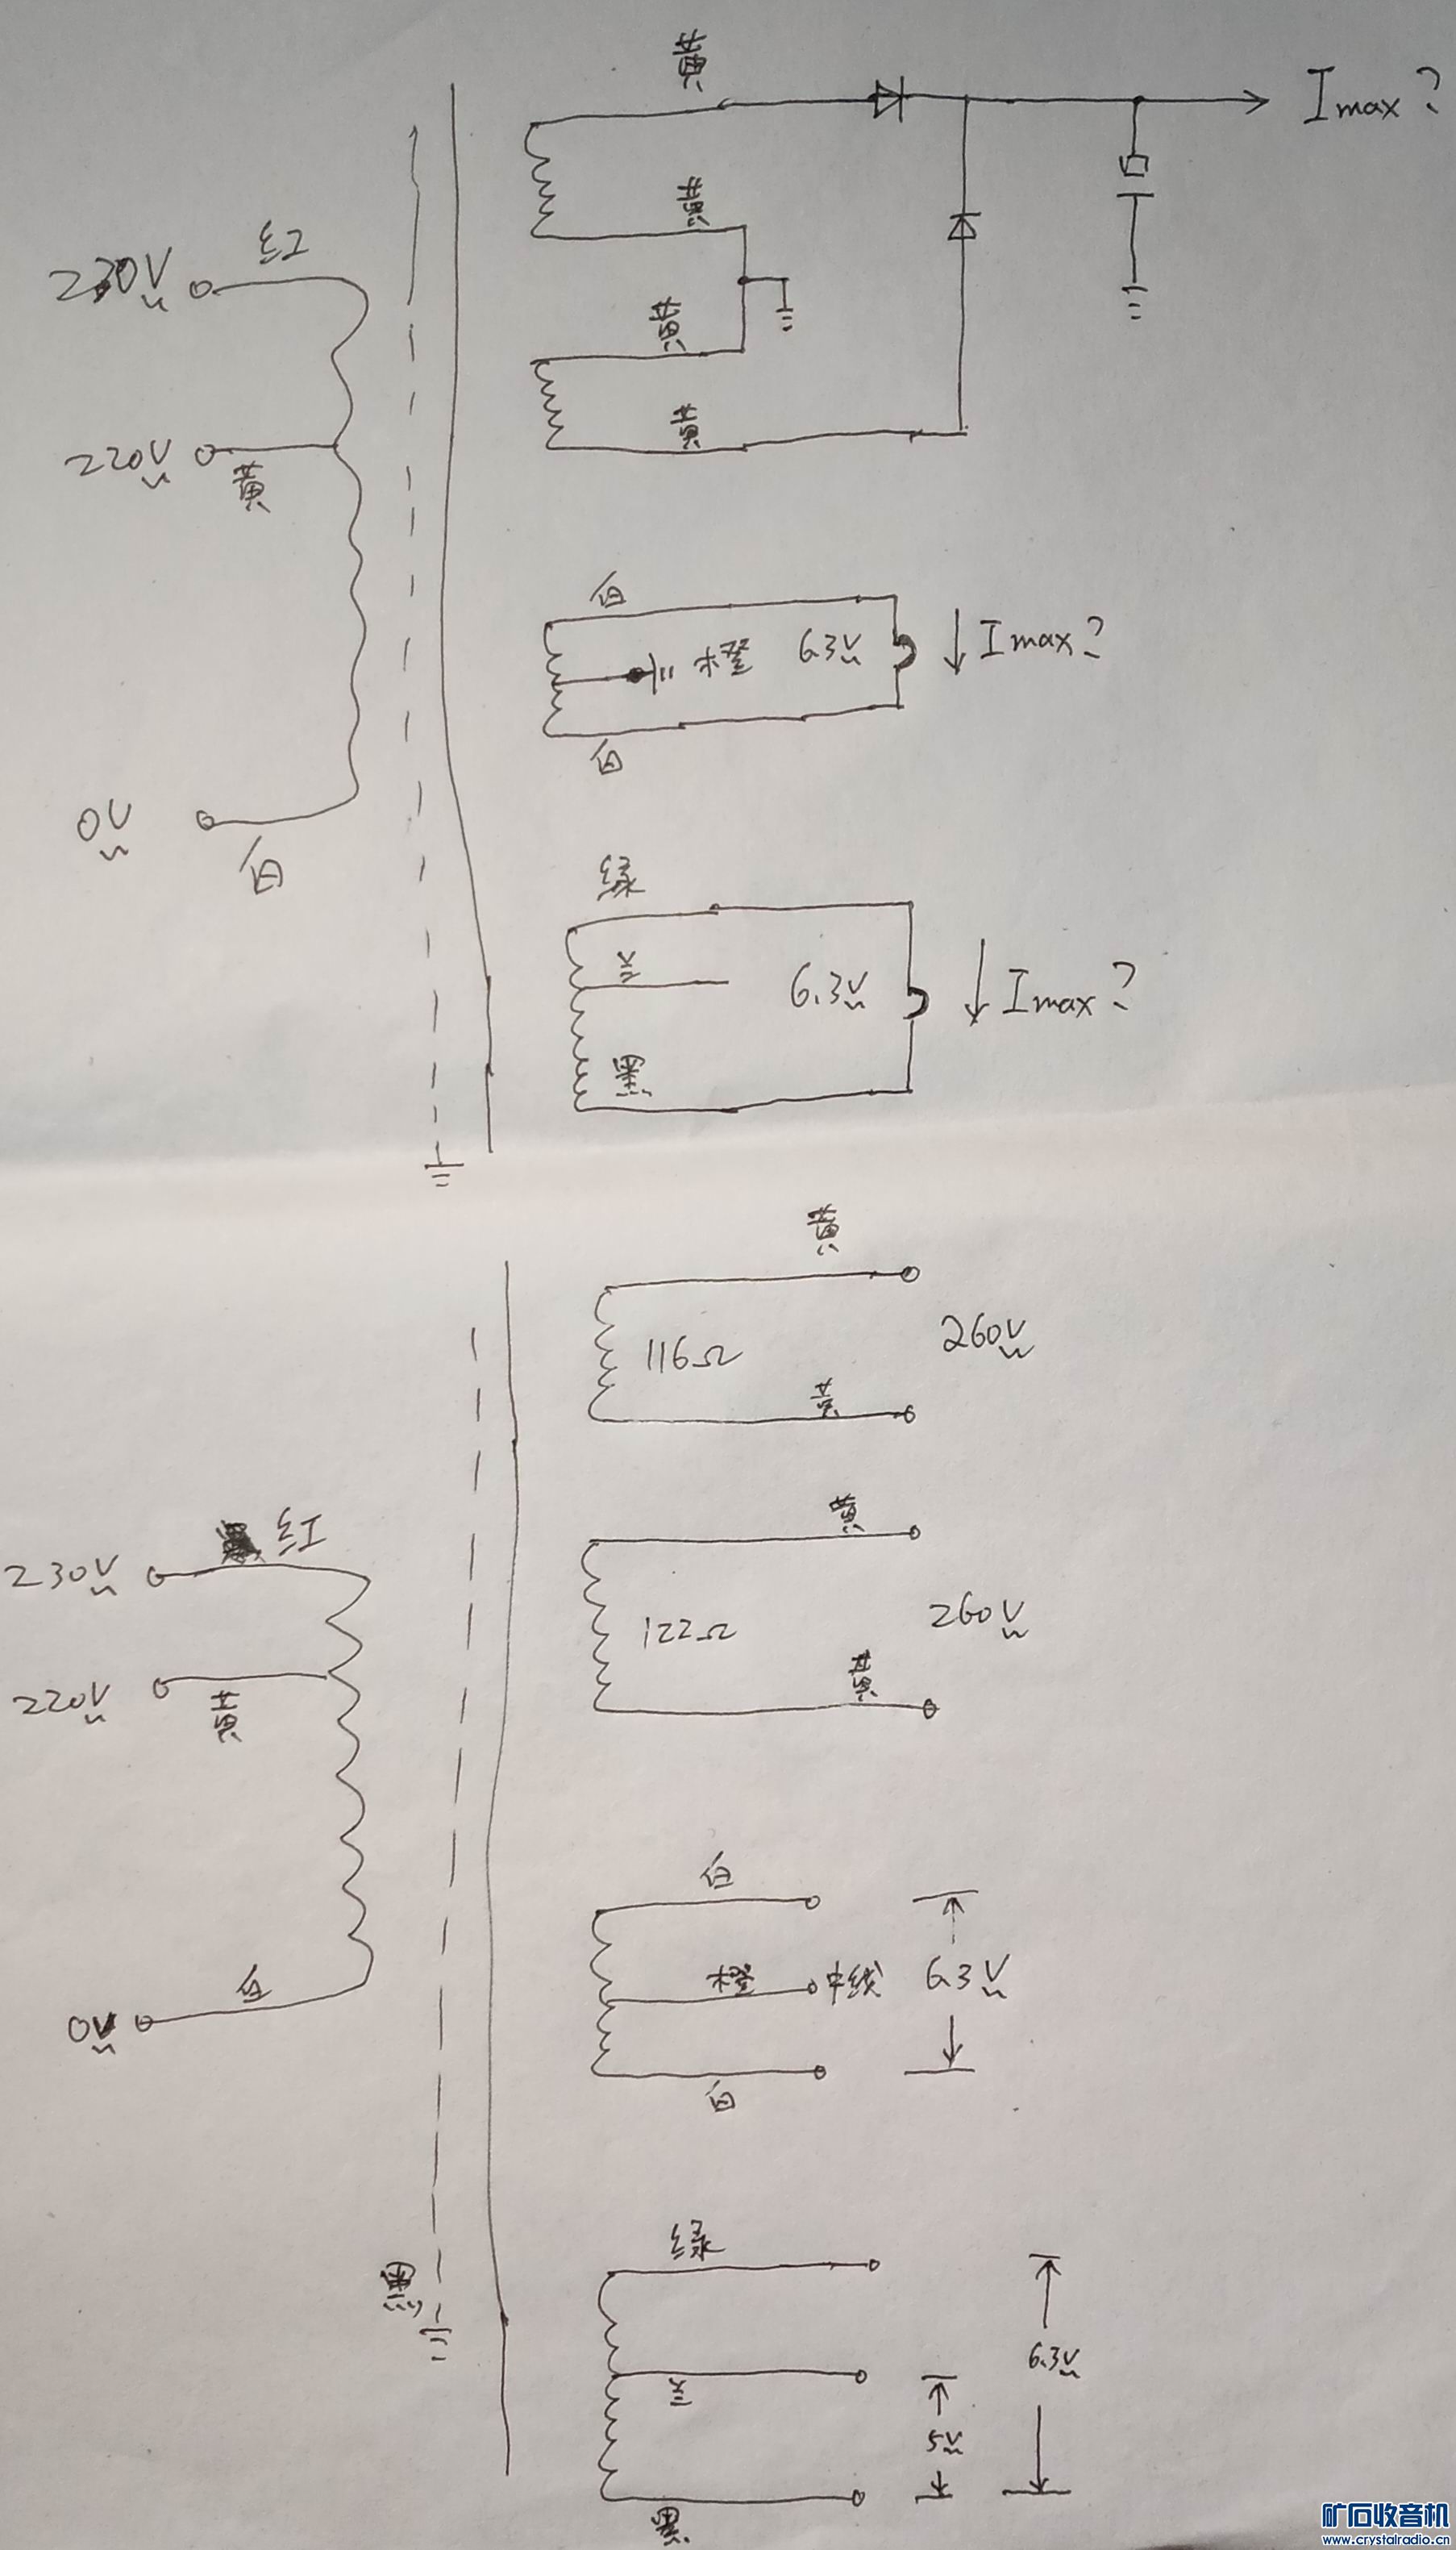 黄
Imax?
黄
230V
红
黄
220V
黄
黄
白
橙
6.3V
Imax?
白
0V
白
绿
兰
6.3V
Imax?
黑
黄
260V
116Ω
黄
黄
红
230V
260V
122Ω
黄
220V
黄
白
橙
中线
6.3V
白
0V
白
绿
黑
兰
6.3V
5V
黑
矿石收音机
www.crystalradio.cn